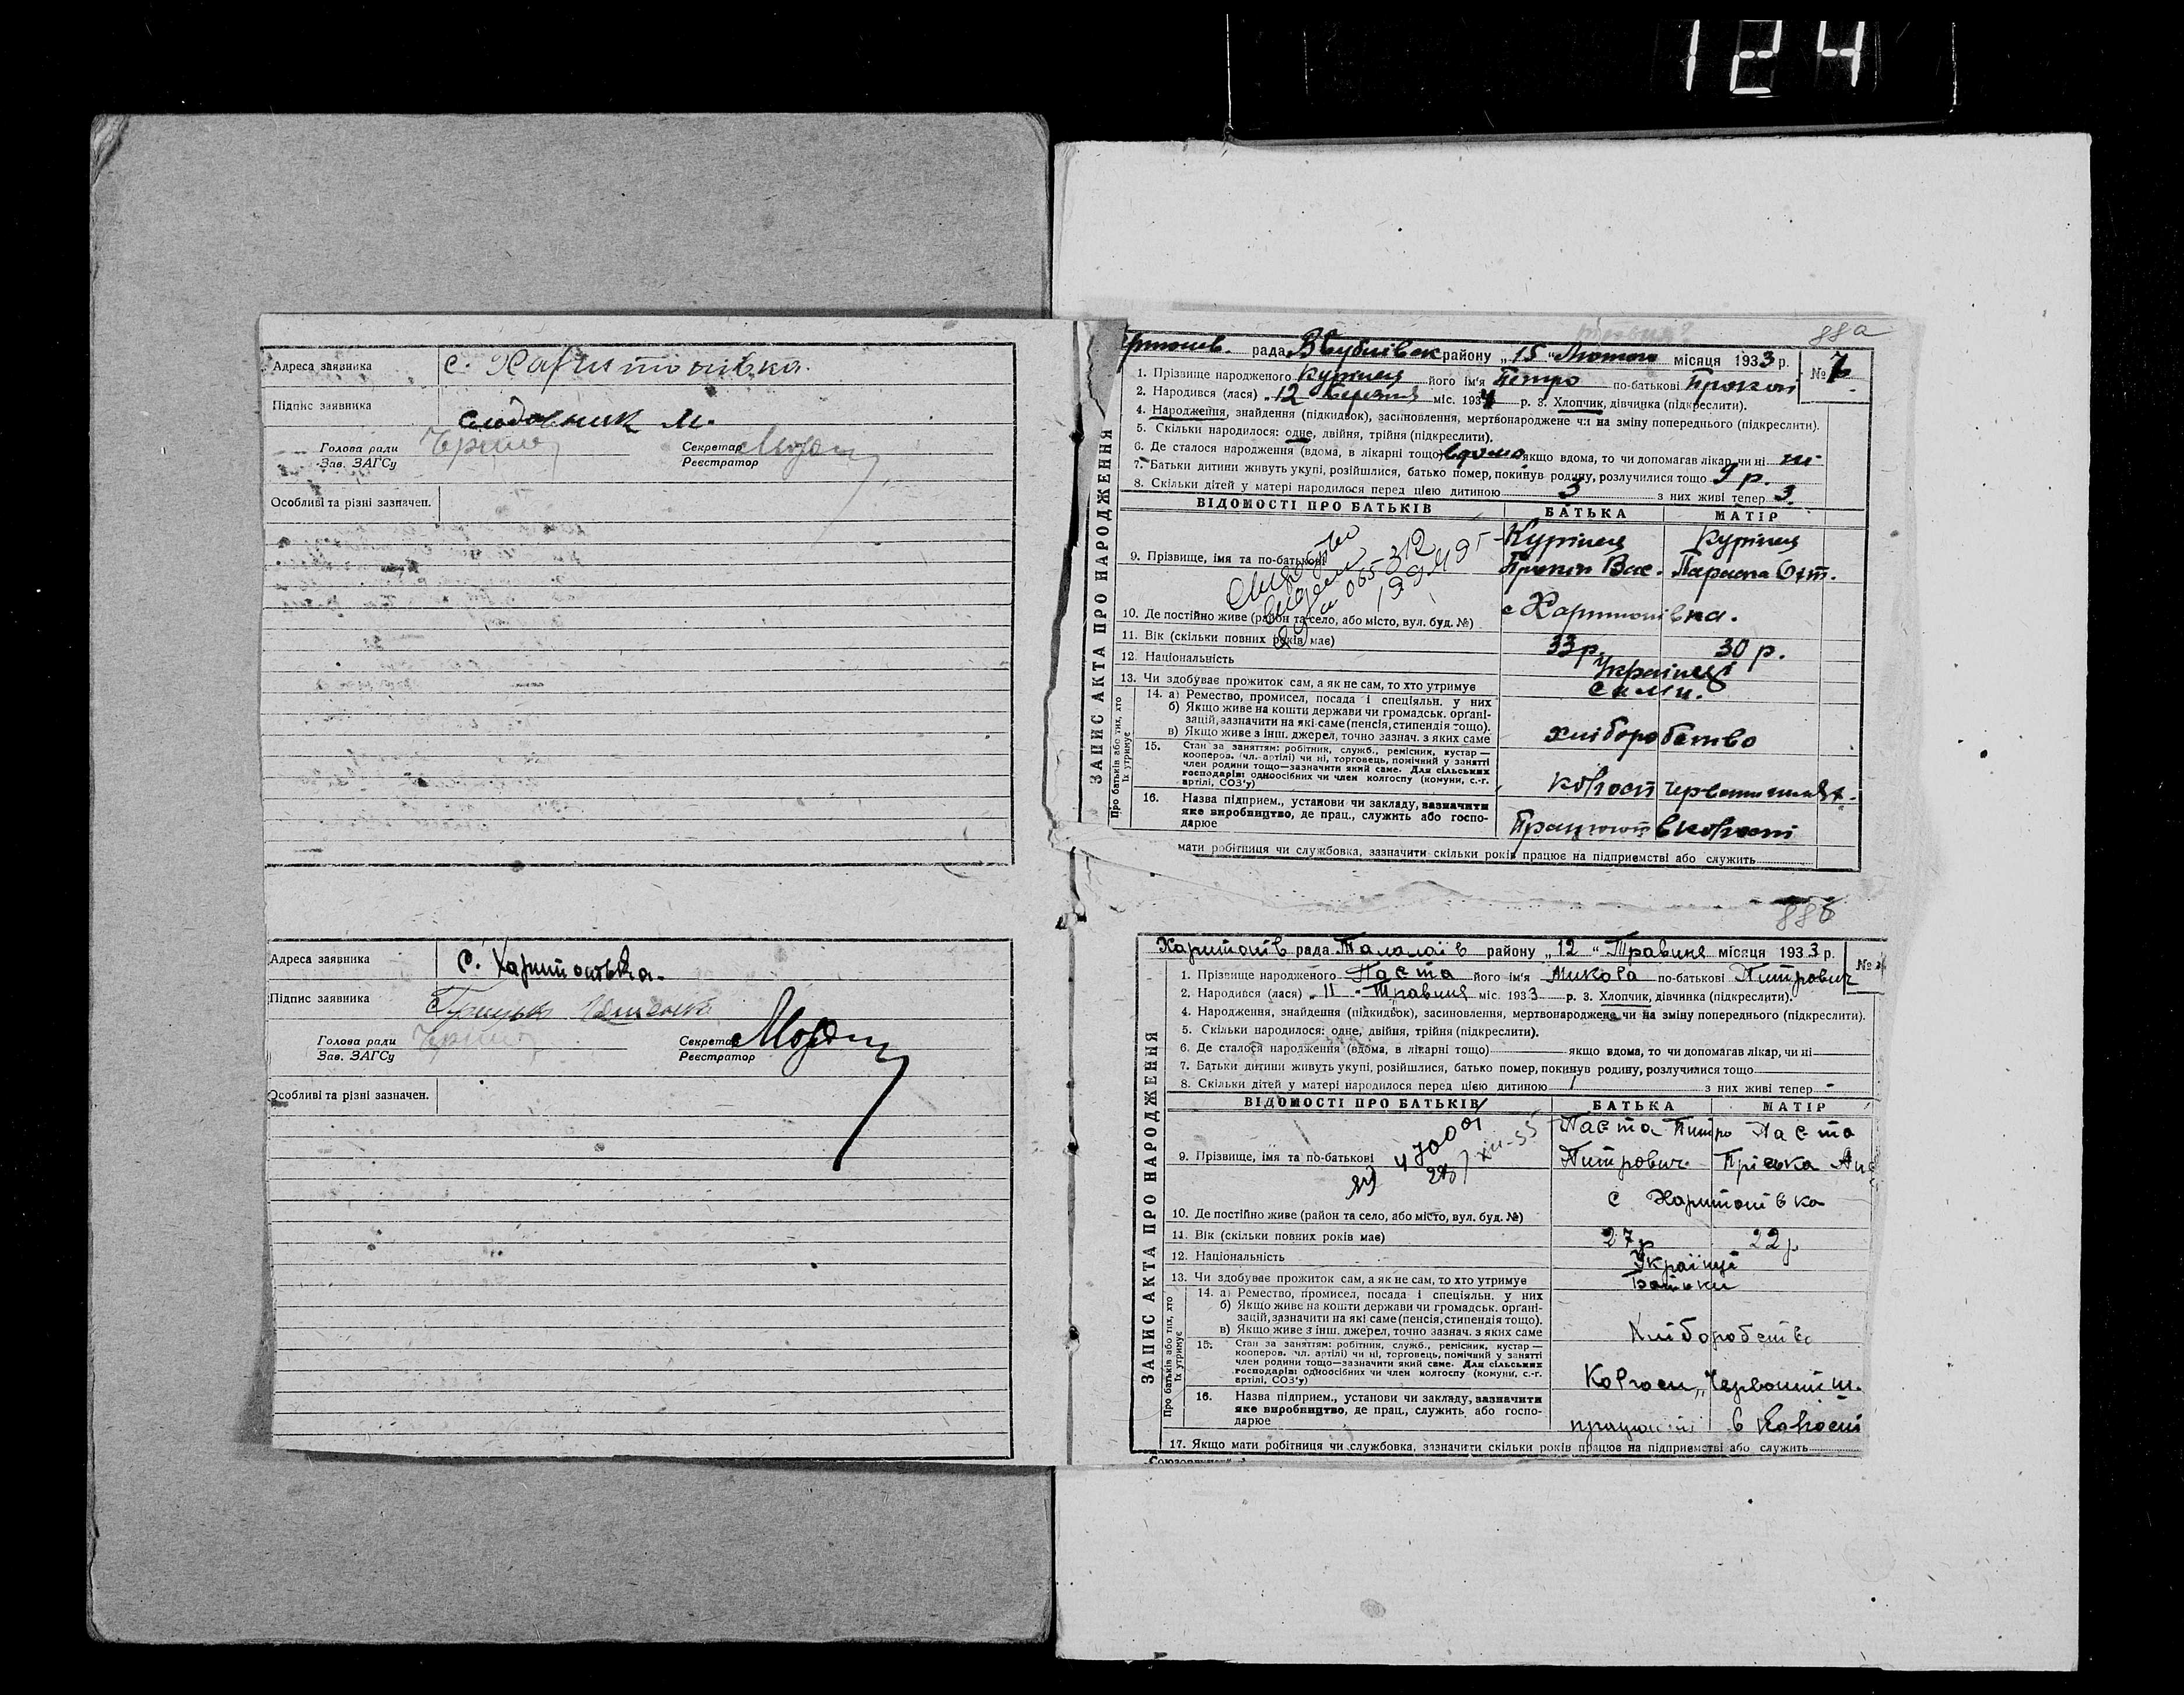 124
Адреса заявника с. Харитонівка.
Підпис заявника М.
Голова ради Секретар
Зав. ЗАГСу Реєстратор
Особливі та різні зазначен.
Адреса заявника с. Харитонівка.
Підпис заявника
Голова ради Секретар
Зав. ЗАГСу Реєстратор
Особливі та різні зазначен.
88а
рада району „15“ Лютого місяця 1933 р. № 7
ЗАПИС АКТА ПРО НАРОДЖЕННЯ
1. Прізвище народженого Курінец його ім'я Петро по-батькові Прокоп
2. Народився (лася) „12 міс. 193 р. 3. Хлопчик, дівчинка (підкреслити).
4. Народження, знайдення (підкидьок), засиновлення, мертвонароджене чи на зміну попереднього (підкреслити).
5. Скільки народилося: одне, двійня, трійня (підкреслити).
6. Де сталося народження (вдома, в лікарні тощо) вдома якщо вдома, то чи допомагав лікар, чи ні ні
7. Батьки дитини живуть укупі, розійшлися, батько помер, покинув родину, розлучилися тощо 9 р.
8. Скільки дітей у матері народилося перед цією дитиною 3 з них живі тепер 3.
ВІДОМОСТІ ПРО БАТЬКІВ БАТЬКА МАТІР
Курінец Курінец
9. Прізвище, імя та по-батькові Прокоп Вас. Параска
10. Де постійно живе (район та село, або місто, вул. буд. №) с Харитонівка.
11. Вік (скільки повних років має) 33 р. 30 р.
12. Національність Українці
13. Чи здобуває прожиток сам, а як не сам, то хто утримує сами.
Про батьків або тих, хто їх утримує
14. а) Ремество, промисел, посада і спеціяльн. у них
б) Якщо живе на кошти держави чи громадськ. орґані-
зацій, зазначити на які саме (пенсія, стипендія тощо).
в) Якщо живе з інш. джерел, точно зазнач. з яких саме
хліборобство
15. Стан за заняттям: робітник, служб., ремісник, кустар—
кооперов. (чл. артілі) чи ні, торговець, помічний у занятті
член родини тощо—зазначити який саме. Для сільських
господарів: одноосібних чи член колгоспу (комуни, с.-г.
артілі, СОЗ'у)
колгосп
16. Назва підприєм., установи чи закладу, зазначити
яке виробництво, де прац., служить або госпо-
дарює
Працюют в колгоспі
мати робітниця чи службовка, зазначити скільки років працює на підприємстві або служить
88б
Харитонів рада Талалаїв району „12“ Травня місяця 1933 р. №
ЗАПИС АКТА ПРО НАРОДЖЕННЯ
1. Прізвище народженого Паста його ім'я Микола по-батькові Питрович
2. Народився (лася) „11“ Травня міс. 1933 р. 3. Хлопчик, дівчинка (підкреслити).
4. Народження, знайдення (підкидьок), засиновлення, мертвонароджене чи на зміну попереднього (підкреслити).
5. Скільки народилося: одне, двійня, трійня (підкреслити).
6. Де сталося народження (вдома, в лікарні тощо) якщо вдома, то чи допомагав лікар, чи ні
7. Батьки дитини живуть укупі, розійшлися, батько помер, покинув родину, розлучилися тощо
8. Скільки дітей у матері народилося перед цією дитиною 1 з них живі тепер -
ВІДОМОСТІ ПРО БАТЬКІВ БАТЬКА МАТІР
Паста Питро Паста
9. Прізвище, імя та по-батькові Питрович Пріська
10. Де постійно живе (район та село, або місто, вул. буд. №) с Харитонівка
11. Вік (скільки повних років має) 27 р 22 р
12. Національність Українці
13. Чи здобуває прожиток сам, а як не сам, то хто утримує Батьки
Про батьків або тих, хто їх утримує
14. а) Ремество, промисел, посада і спеціяльн. у них
б) Якщо живе на кошти держави чи громадськ. орґані-
зацій, зазначити на які саме (пенсія, стипендія тощо).
в) Якщо живе з інш. джерел, точно зазнач. з яких саме
Хліборобство
15. Стан за заняттям: робітник, служб., ремісник, кустар—
кооперов. чл. артілі) чи ні, торговець, помічний у занятті
член родини тощо—зазначити який саме. Для сільських
господарів: одноосібних чи член колгоспу (комуни, с.-г.
артілі, СОЗ'у)
Колгосп
16. Назва підприєм., установи чи закладу, зазначити
яке виробництво, де прац., служить або госпо-
дарює
в колгоспі
17. Якщо мати робітниця чи службовка, зазначити скільки років працює на підприємстві або служить